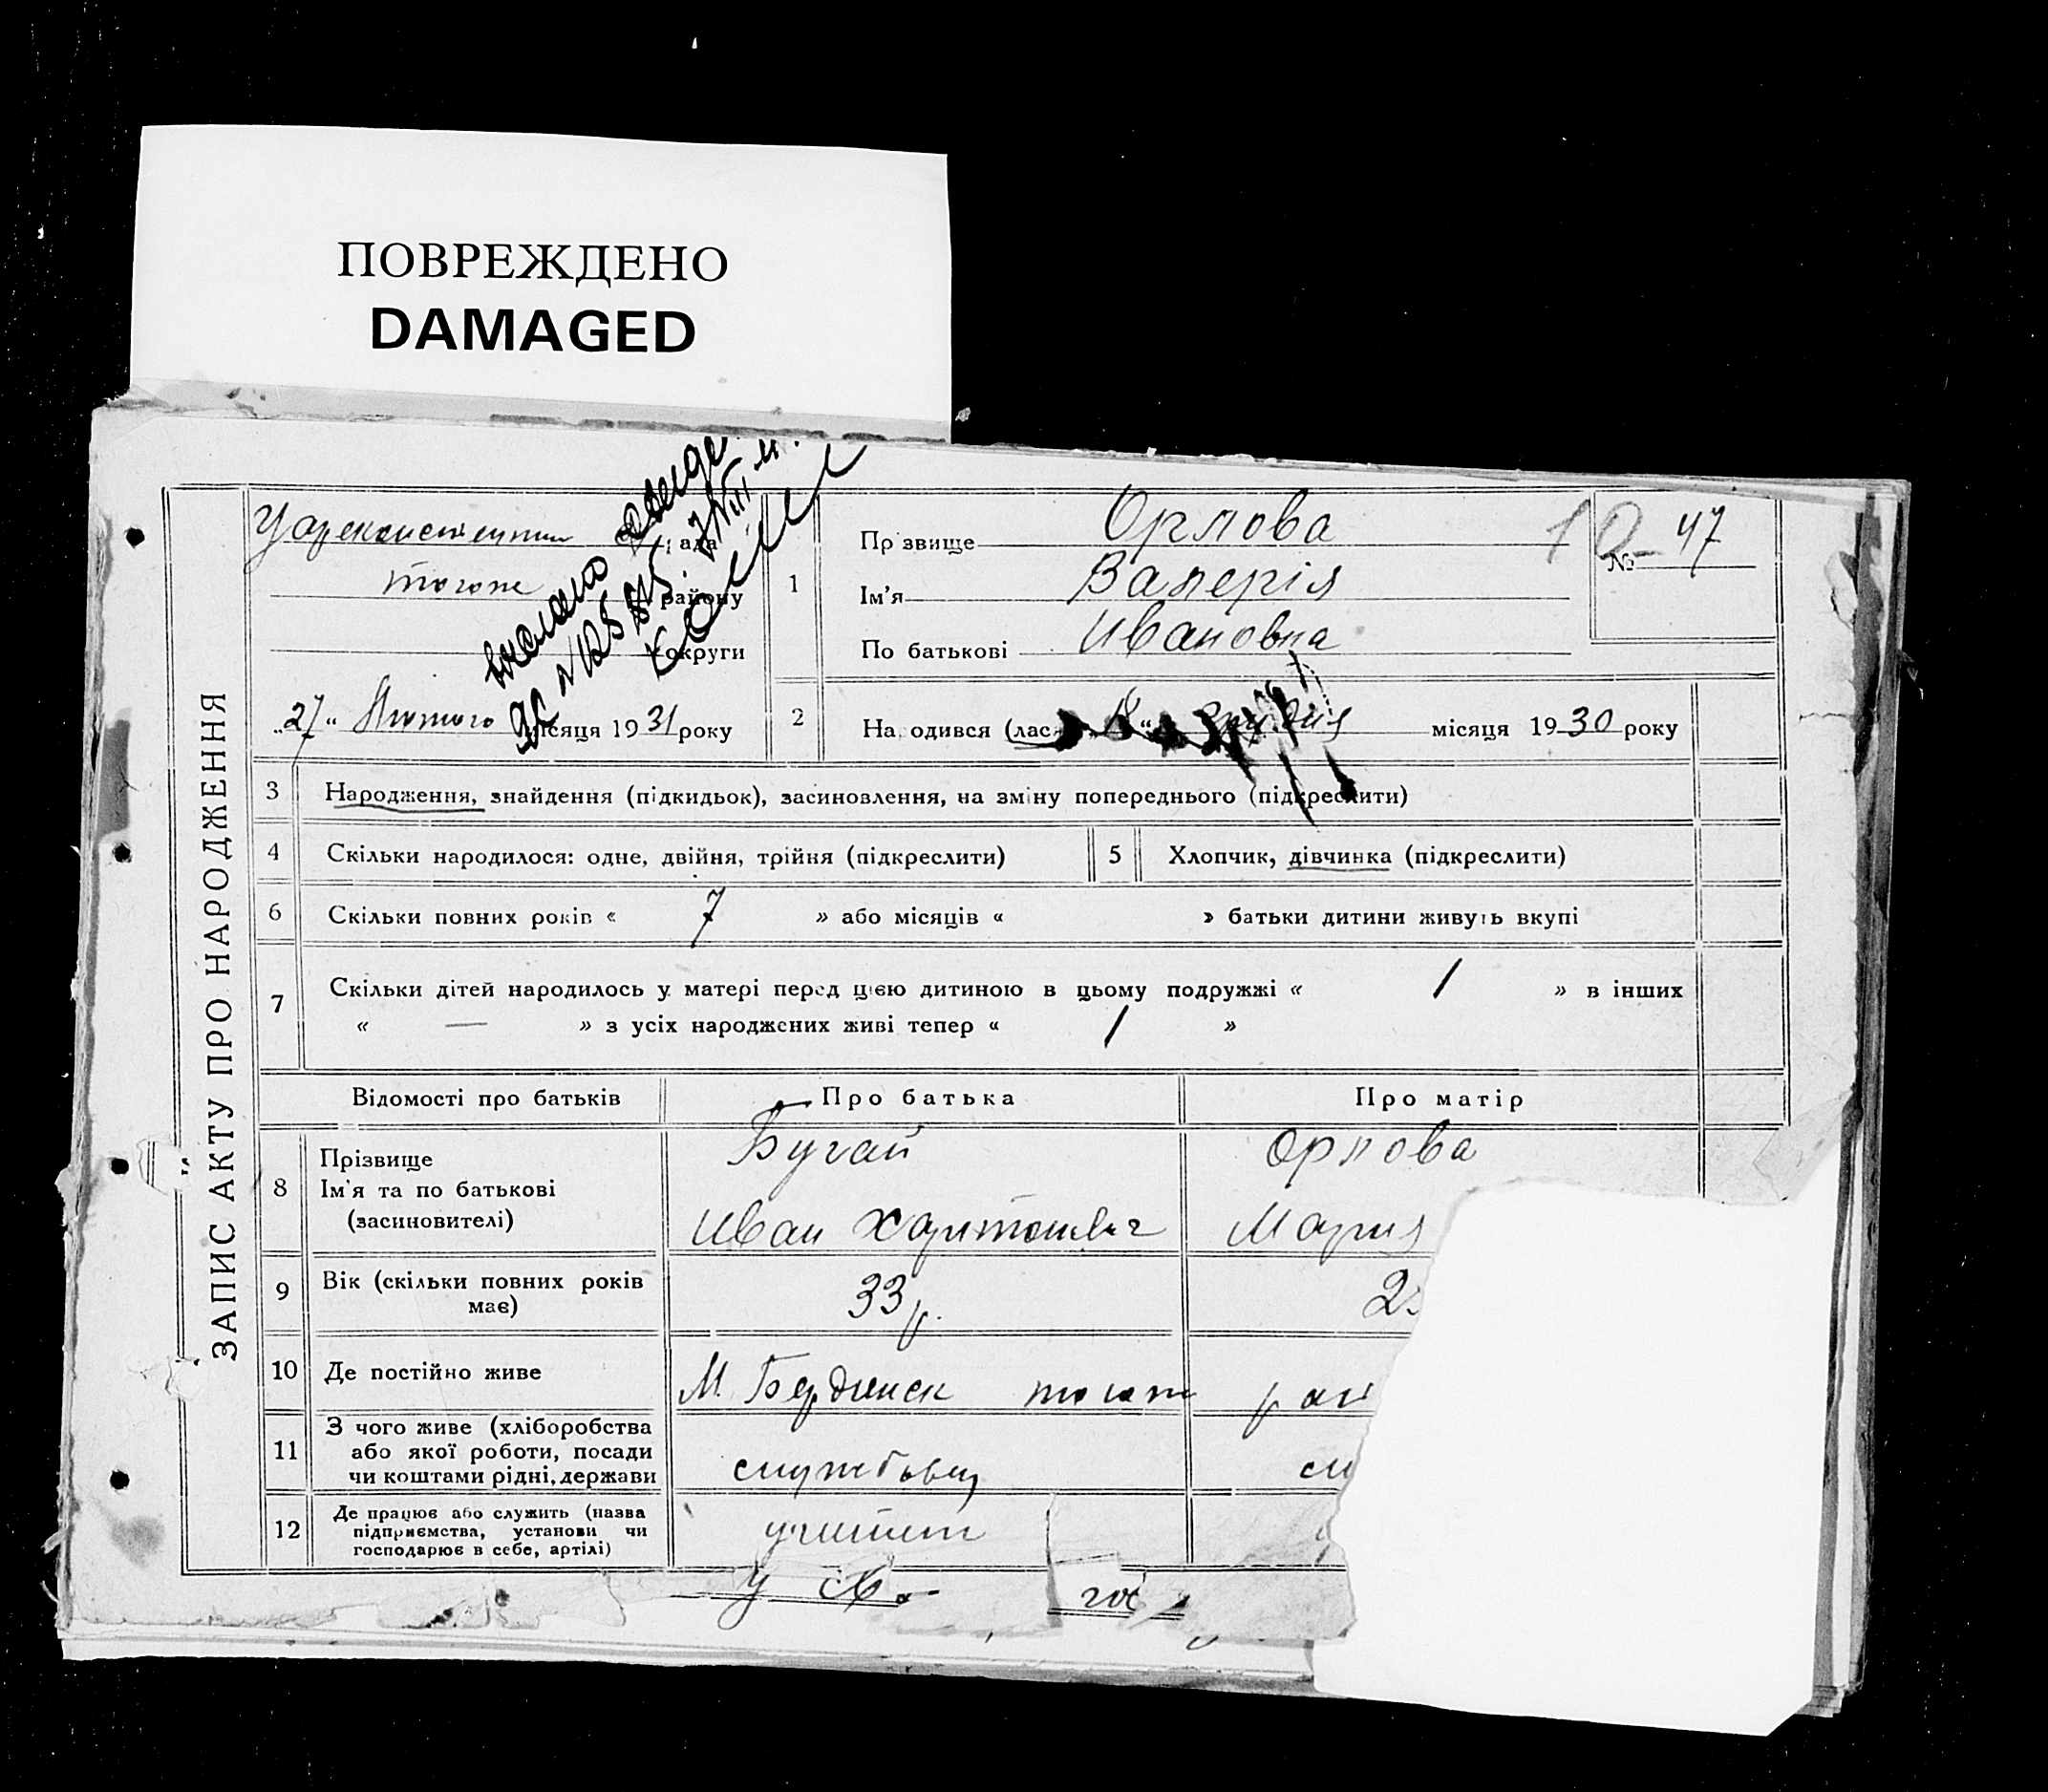 ПОВРЕЖДЕНО
DAMAGED
ЗАПИС АКТУ ПРО НАРОДЖЕННЯ
району
округи
„27“ Лютого місяця 1931 року
1
Прізвище Орлова
Ім'я Валерія
По батькові Ивановна
10
№ 47
2
Народився (лас 18 “ Грудня місяця 1930 року
3 Народження, знайдення (підкидьок), засиновлення, на зміну попереднього (підкреслити)
4 Скільки народилося: одне, двійня, трійня (підкреслити) 5 Хлопчик, дівчинка (підкреслити)
6 Скільки повних років « 7 » або місяців « » батьки дитини живуть вкупі
7 Скільки дітей народилось у матері перед цією дитиною в цьому подружжі « 1 » в інших
« — » з усіх народжених живі тепер « 1 »
Відомості про батьків Про батька Про матір
8 Прізвище Бугай Орлова
Ім'я та по батькові
(засиновителі) Иван Харитонович Мария
9 Вік (скільки повних років
має) 33 р. 2
10 Де постійно живе М. Бердянск
11 З чого живе (хліборобства
або якої роботи, посади
чи коштами рідні, держави службовец
12 Де працює або служить (назва
підприємства, установи чи
господарює в себе, артілі)